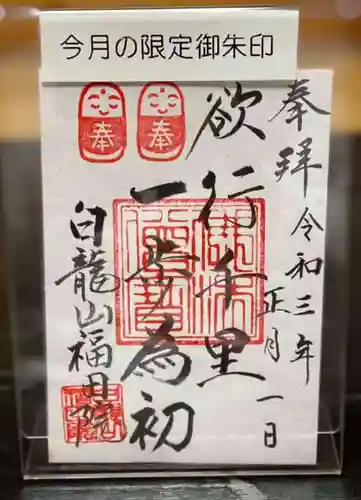 今月の限定御朱印
奉拝
令和三年
正月一日
欲行千里
一歩為初
白龍山福田院
奉
奉